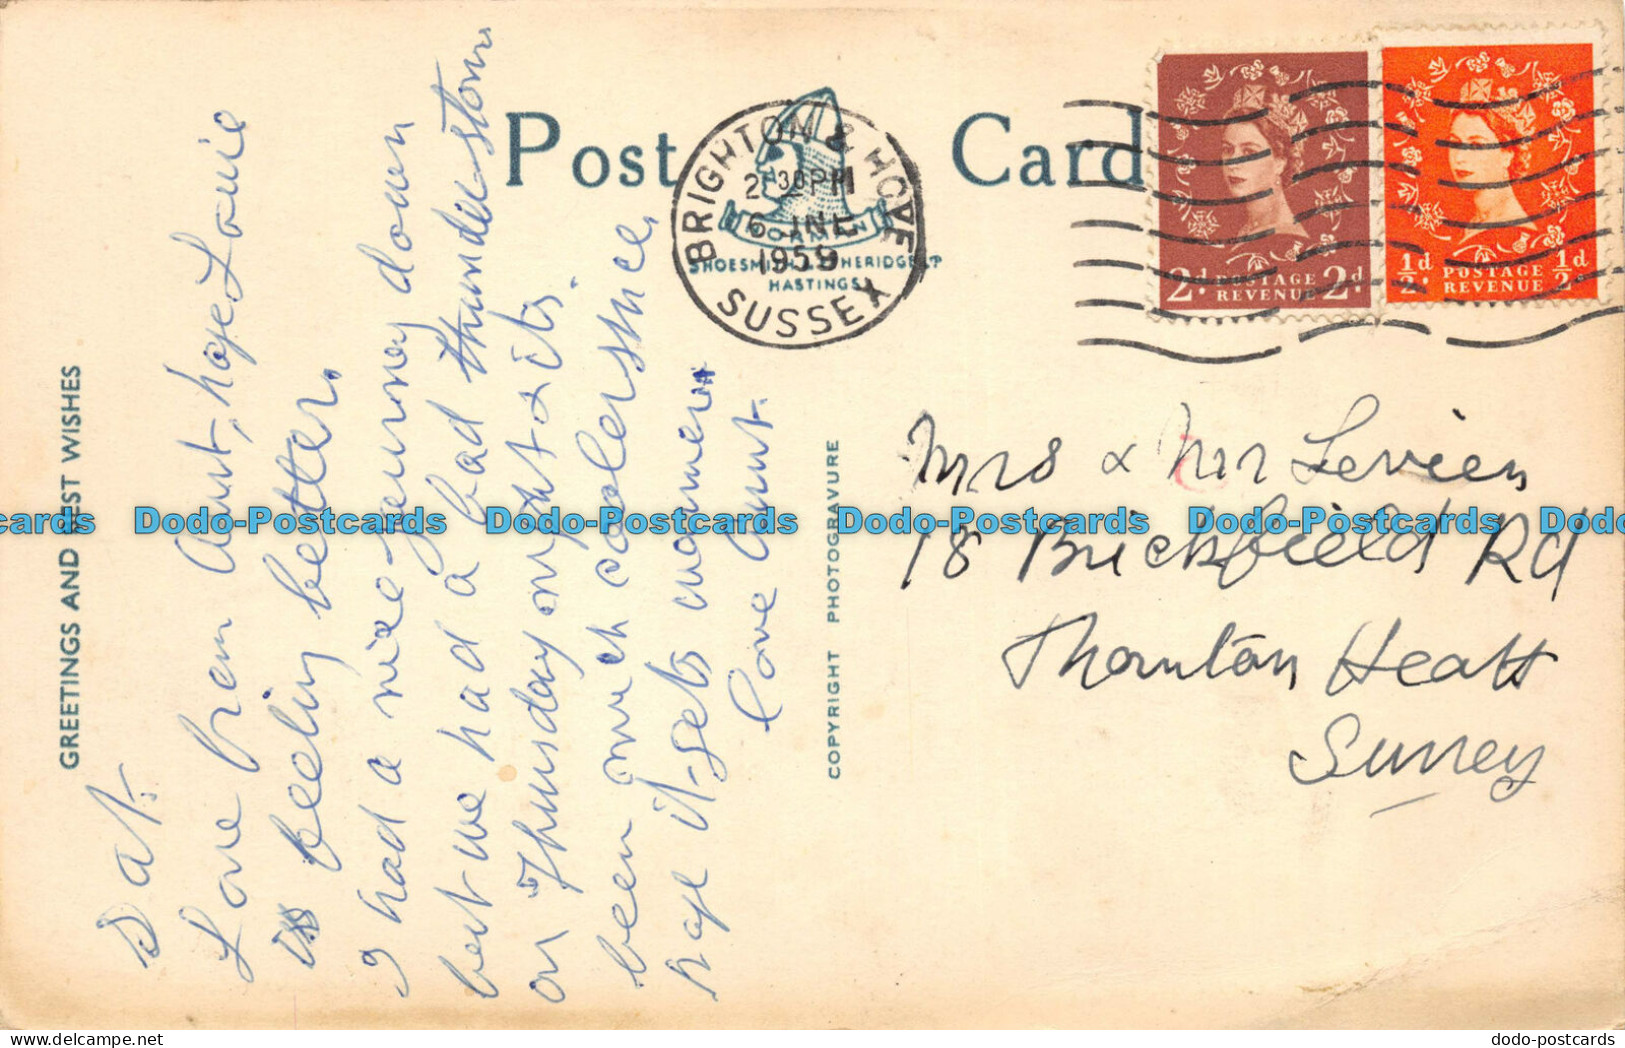 Post Card
BRIGHTON & HOVE
2-30PM
6 JNE
1959
SUSSEX
NORMAN
SHOESMITH & ETHERIDGE LTD
HASTINGS
2d. POSTAGE REVENUE 2d.
½d. POSTAGE REVENUE ½d.
GREETINGS AND BEST WISHES
Sat.
Love from Aunt, hope Louie
is feeling better.
I had a nice journey down
but we had a bad thunder storm
on Thursday night & its
been much cooler since,
hope it gets warmer
love Aunt.
COPYRIGHT PHOTOGRAVURE
Mrs & Mr Levien
18 Brickfield Rd
Thornton Heath
Surrey
Dodo-Postcards Dodo-Postcards Dodo-Postcards Dodo-Postcards Dodo-Postcards
dodo-postcards